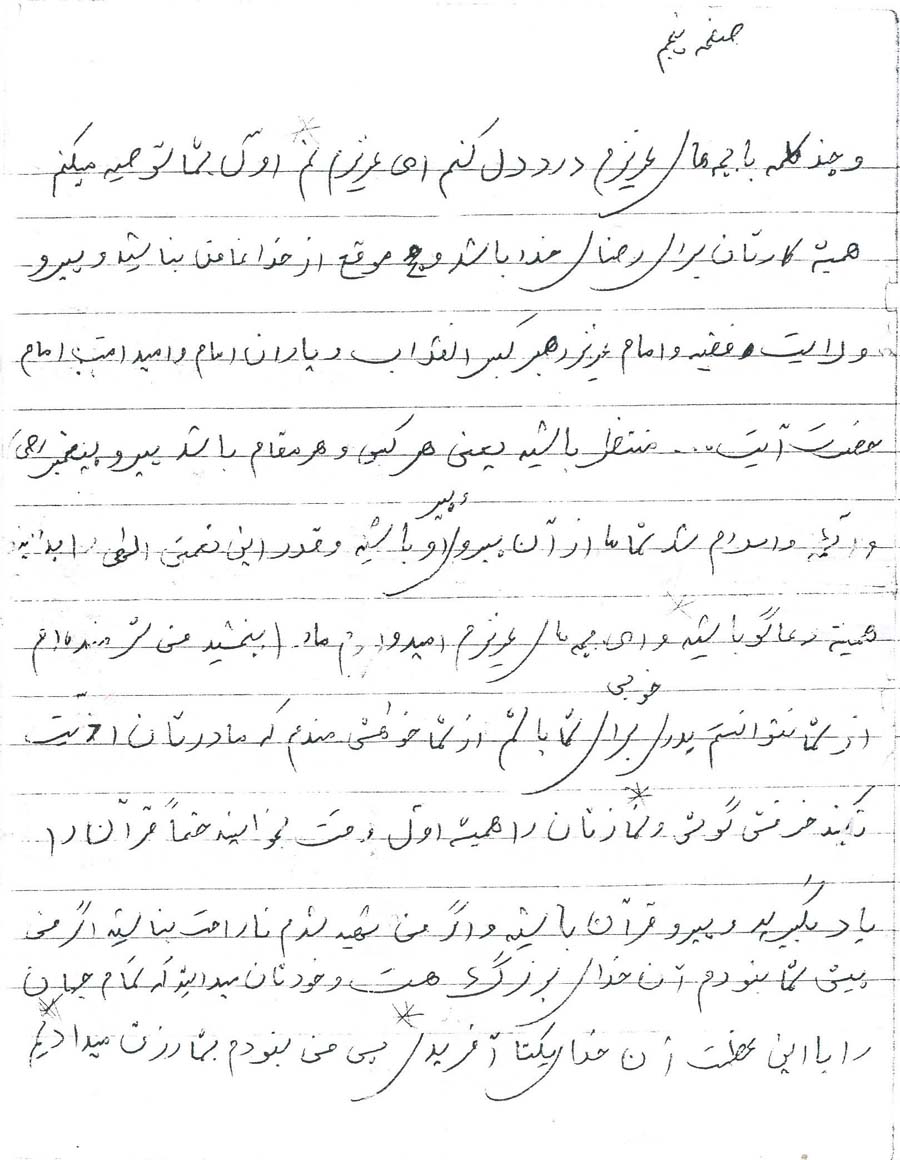 صفحه پنجم
و چند کلمه با بچه های عزیزم درد دل کنم ای عزیزم اول بشما توصیه میکنم
همیشه کارتان برای رضای خدا باشد و هیچ موقع از خدا غافل نباشید و پیرو
ولایت فقیه و امام عزیز رهبر کبیر انقلاب و یاران امام و امید امت امام
حضرت آیت ... منتظری باشید یعنی هر کسی و هر مقام باشد پیرو پیغمبر
و ائمه و اسلام شد شما ها از آن پیروی و باشید و قدر این نعمتی الهی را بدانید
همیشه دعاگو باشید و ای بچه های عزیزم امیدوارم ما را ببخشید من شرمنده ام
خوبی
از شما نتوانستم پدری برای شما باشم از شما خواهش مندم که مادرتان اذیت
نکنید حرفش گوش و نمازتان را همیشه اول وقت بخوانید حتماً قرآن را
یاد بگیرید و پیرو قرآن باشید و اگر من شهید شدم ناراحت نباشید اگر من
پیش شما نبودم آن خدای بزرگ هست و خودتان میدانید که تمام جهان
را با این عظمت آن خدای یکتا آفریدی پس من نبودم بشما رزق میداد